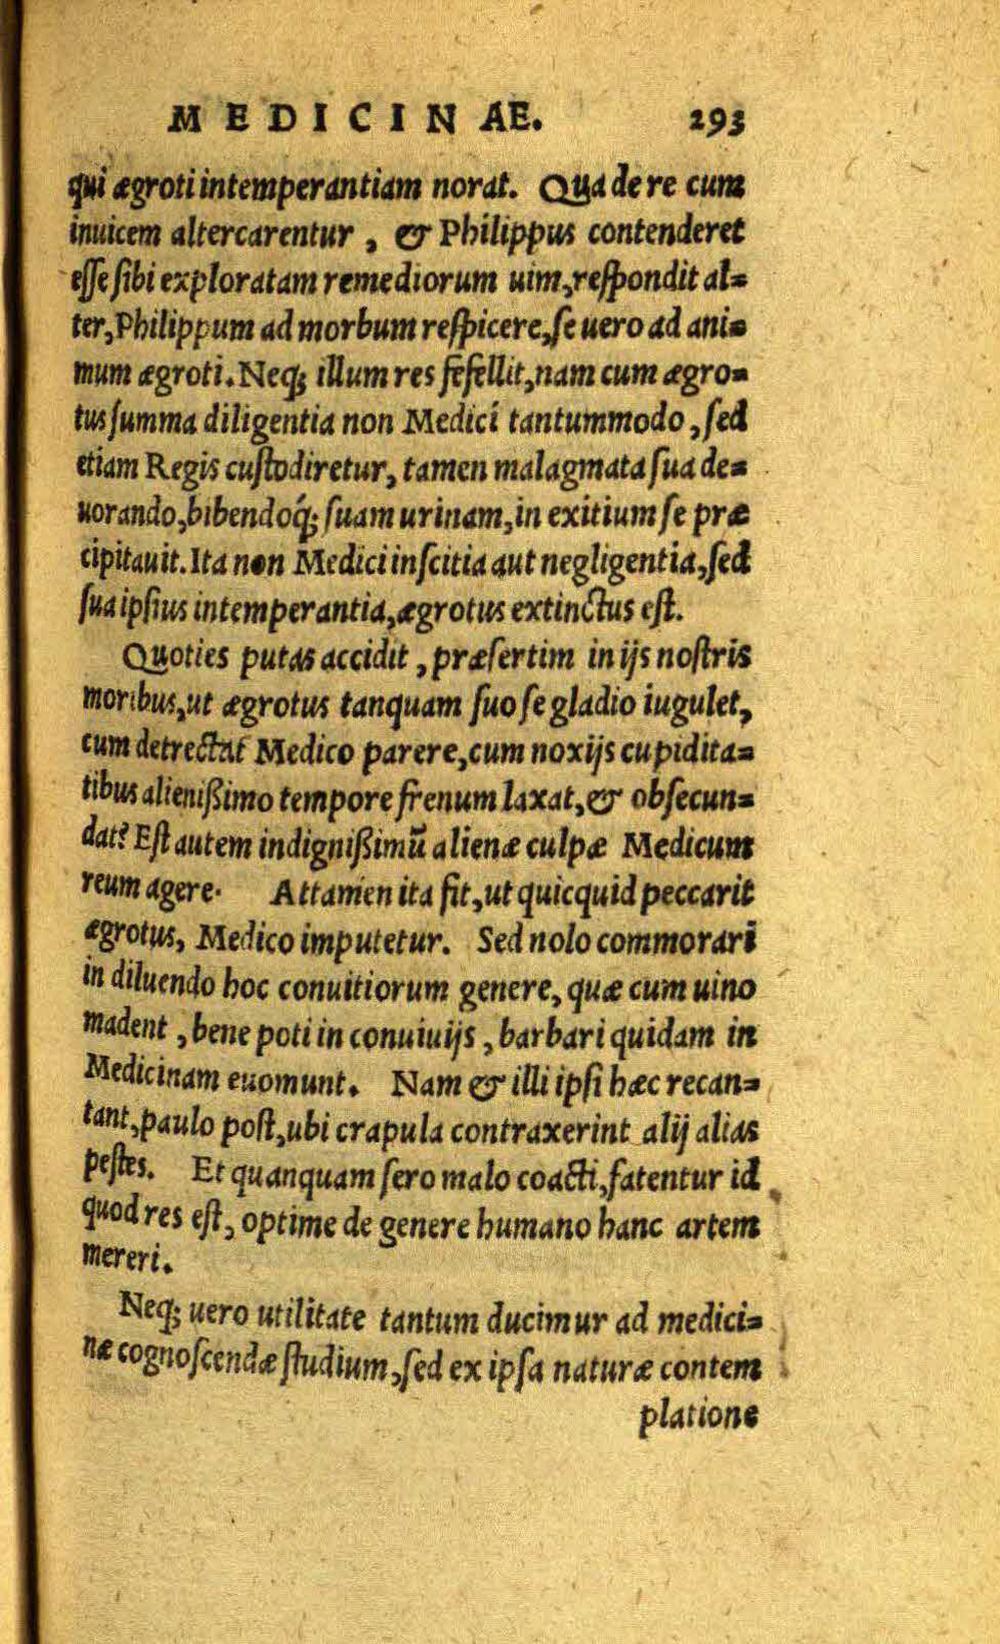 MEDICINAE. 293
qui ægroti intemperantiam norat. Qua de re cum
inuicem altercarentur, & Philippus contenderet
esse sibi exploratam remediorum uim, respondit al=
ter, Philippum ad morbum respicere, se uero ad ani=
mum ægroti. Neq; illum res fefellit, nam cum ægro=
tus summa diligentia non Medici tantummodo, sed
etiam Regis custodiretur, tamen malagmata sua de=
uorando, bibendóq; suam urinam, in exitium se præ
cipitauit. Ita non Medici inscitia aut negligentia, sed
sua ipsius intemperantia, ægrotus extinctus est.
Quoties putas accidit, præsertim in ijs nostris
moribus, ut ægrotus tanquam suo se gladio iugulet,
cum detrectat Medico parere, cum noxijs cupidita=
tibus alienißimo tempore frenum laxat, & obsecun=
dat? Est autem indignißimū alienæ culpæ Medicum
reum agere. Attamen ita fit, ut quicquid peccarit
ægrotus, Medico imputetur. Sed nolo commorari
in diluendo hoc conuitiorum genere, quæ cum uino
madent, bene poti in conuiuijs, barbari quidam in
Medicinam euomunt. Nam & illi ipsi hæc recan=
tant, paulo post, ubi crapula contraxerint alij alias
pestes. Et quanquam sero malo coacti, fatentur id
quod res est, optime de genere humano hanc artem
mereri.
Neq; uero utilitate tantum ducimur ad medici=
næ cognoscendæ studium, sed ex ipsa naturæ contem
platione